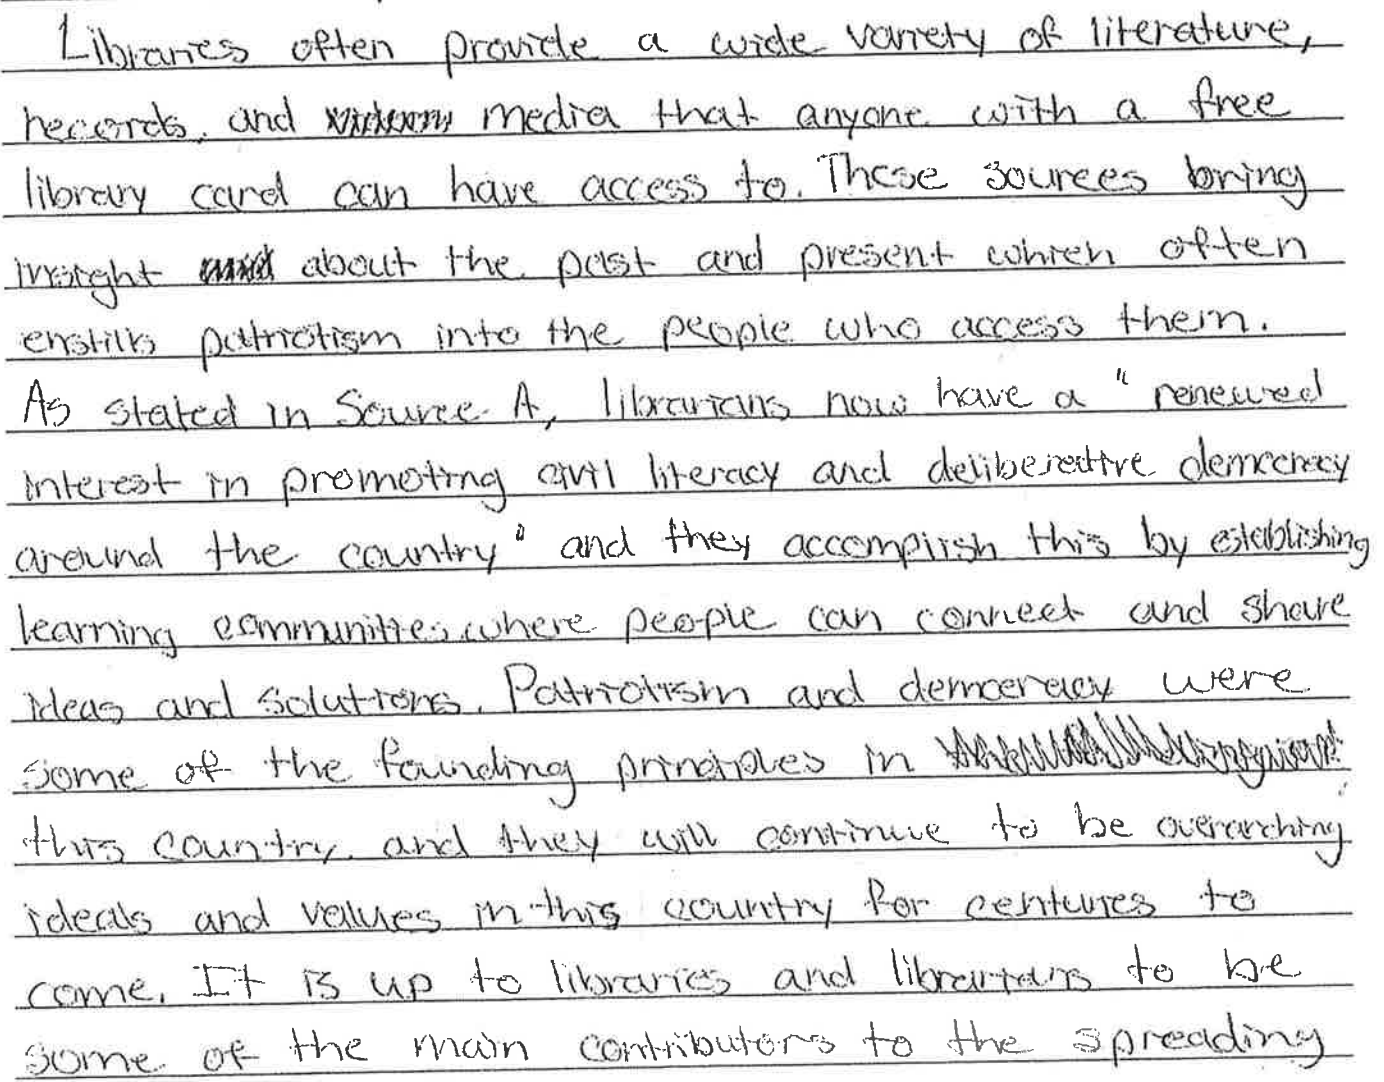 Libraries often provide a wide variety of literature,
records, and media that anyone with a free
library card can have access to. These sources bring
insight about the past and present which often
enstills patriotism into the people who access them.
As stated in Source A, librarians now have a "renewed
interest in promoting civil literacy and deliberative democracy
around the country" and they accomplish this by establishing
learning communities where people can connect and share
ideas and solutions. Patriotism and democracy were
some of the founding principles in
this country, and they will continue to be overarching
ideals and values in this country for centuries to
come. It is up to libraries and librarians to be
some of the main contributors to the spreading